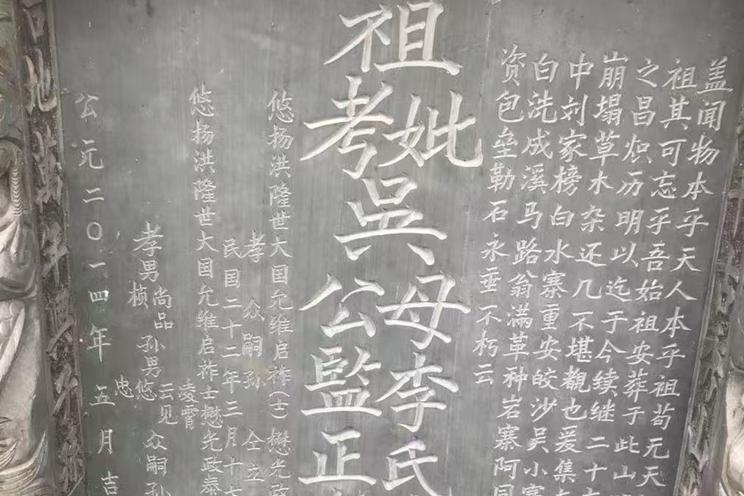 盖闻物本乎天人本乎祖苟无天
祖其可忘乎吾始祖安葬于此山
之昌炽历明以迄于今续继二十
崩塌草木杂还几不堪觀也爰集
中刘家榜白水寨重安皎沙吴小寨
白洗成溪马路翁满革种岩寨阿
资包垒勒石永垂不朽云
祖
考妣
吳
公母
監李
正氏
悠扬洪隆世大国允维启祚(士)懋光政
孝众嗣孙 仝立
民国二十二年三月十七
悠扬洪隆世大国允维启祚士懋光政泰
凌霄
孝男尚品孙男云见众嗣孙
桢 悠
忠
公元二〇一四年五月吉